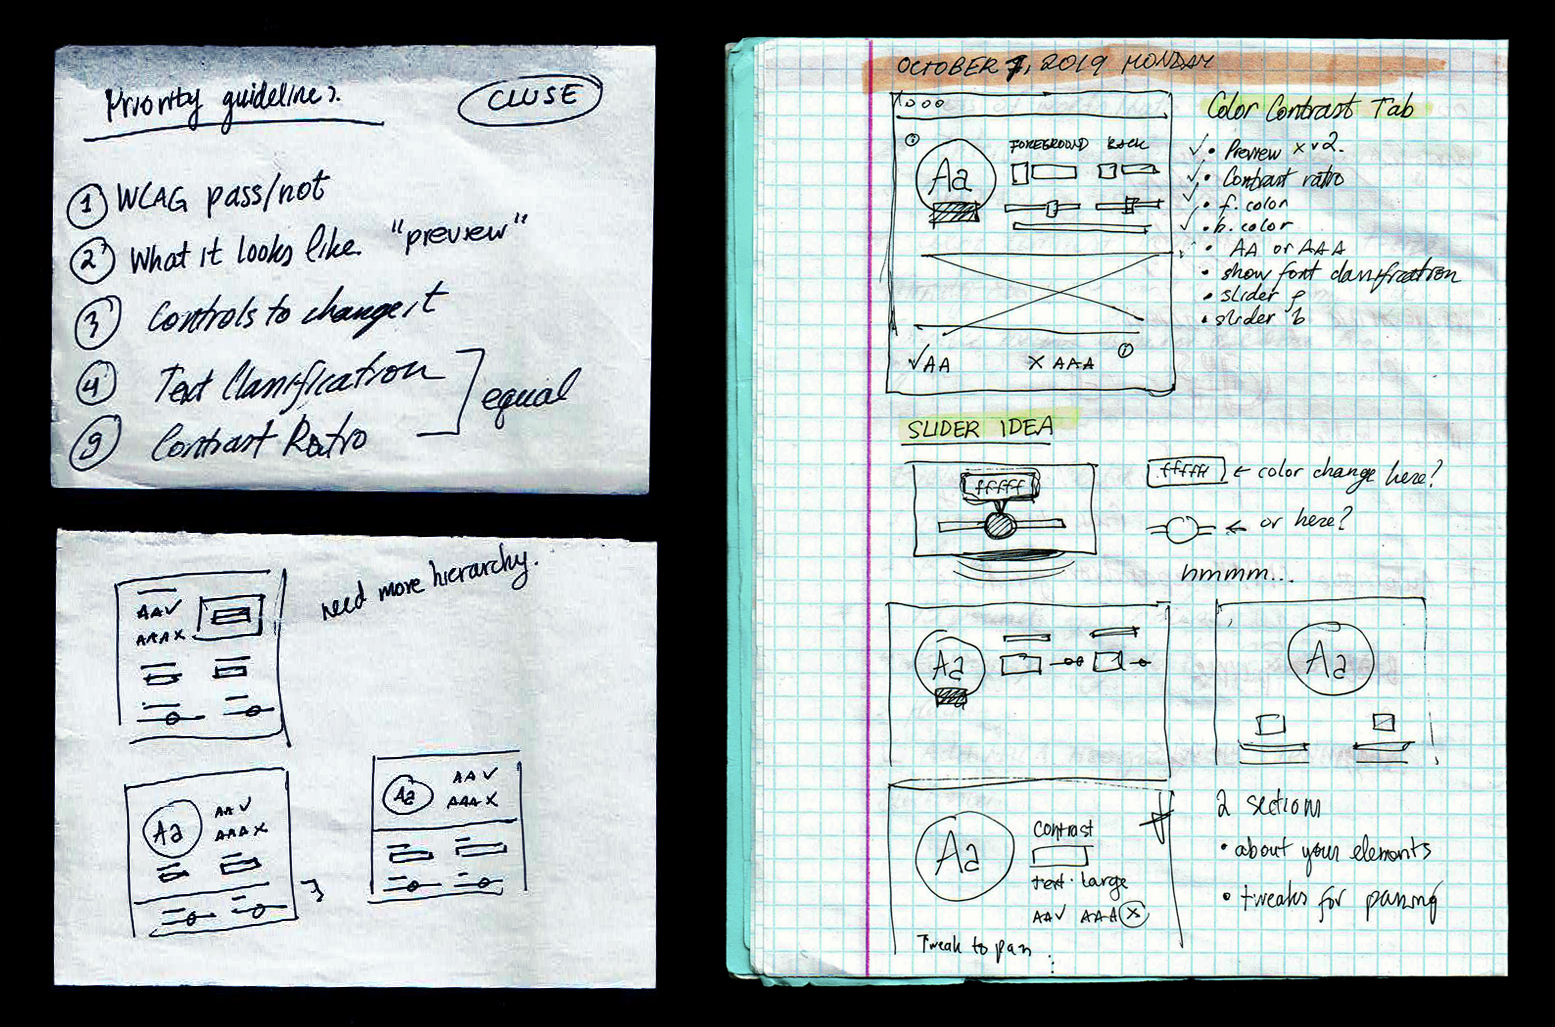 Priority guidelines.
CLOSE
1 WCAG pass/not
2 What it looks like. "preview"
3 Controls to change it
4 Text Classification
5 Contrast Ratio
equal
need more hierarchy.
AA✓
AAA X
Aa
AA ✓
AAA X
Aa
AA ✓
AAA X
OCTOBER 7, 2019 MONDAY
Color Contrast Tab
✓ • Preview x v2.
✓ • Contrast ratio
✓ • f. color
✓ • b. color
• AA or AAA
• show font classification
• slider f
• slider b
FOREGROUND BACK
Aa
✓AA X AAA
SLIDER IDEA
ffffff
ffffff ← color change here?
← or here?
hmmm...
Aa
Aa
Aa
Contrast
text · Large
AA✓ AAA X
Tweak to pass
2 sections
• about your elements
• tweaks for passing